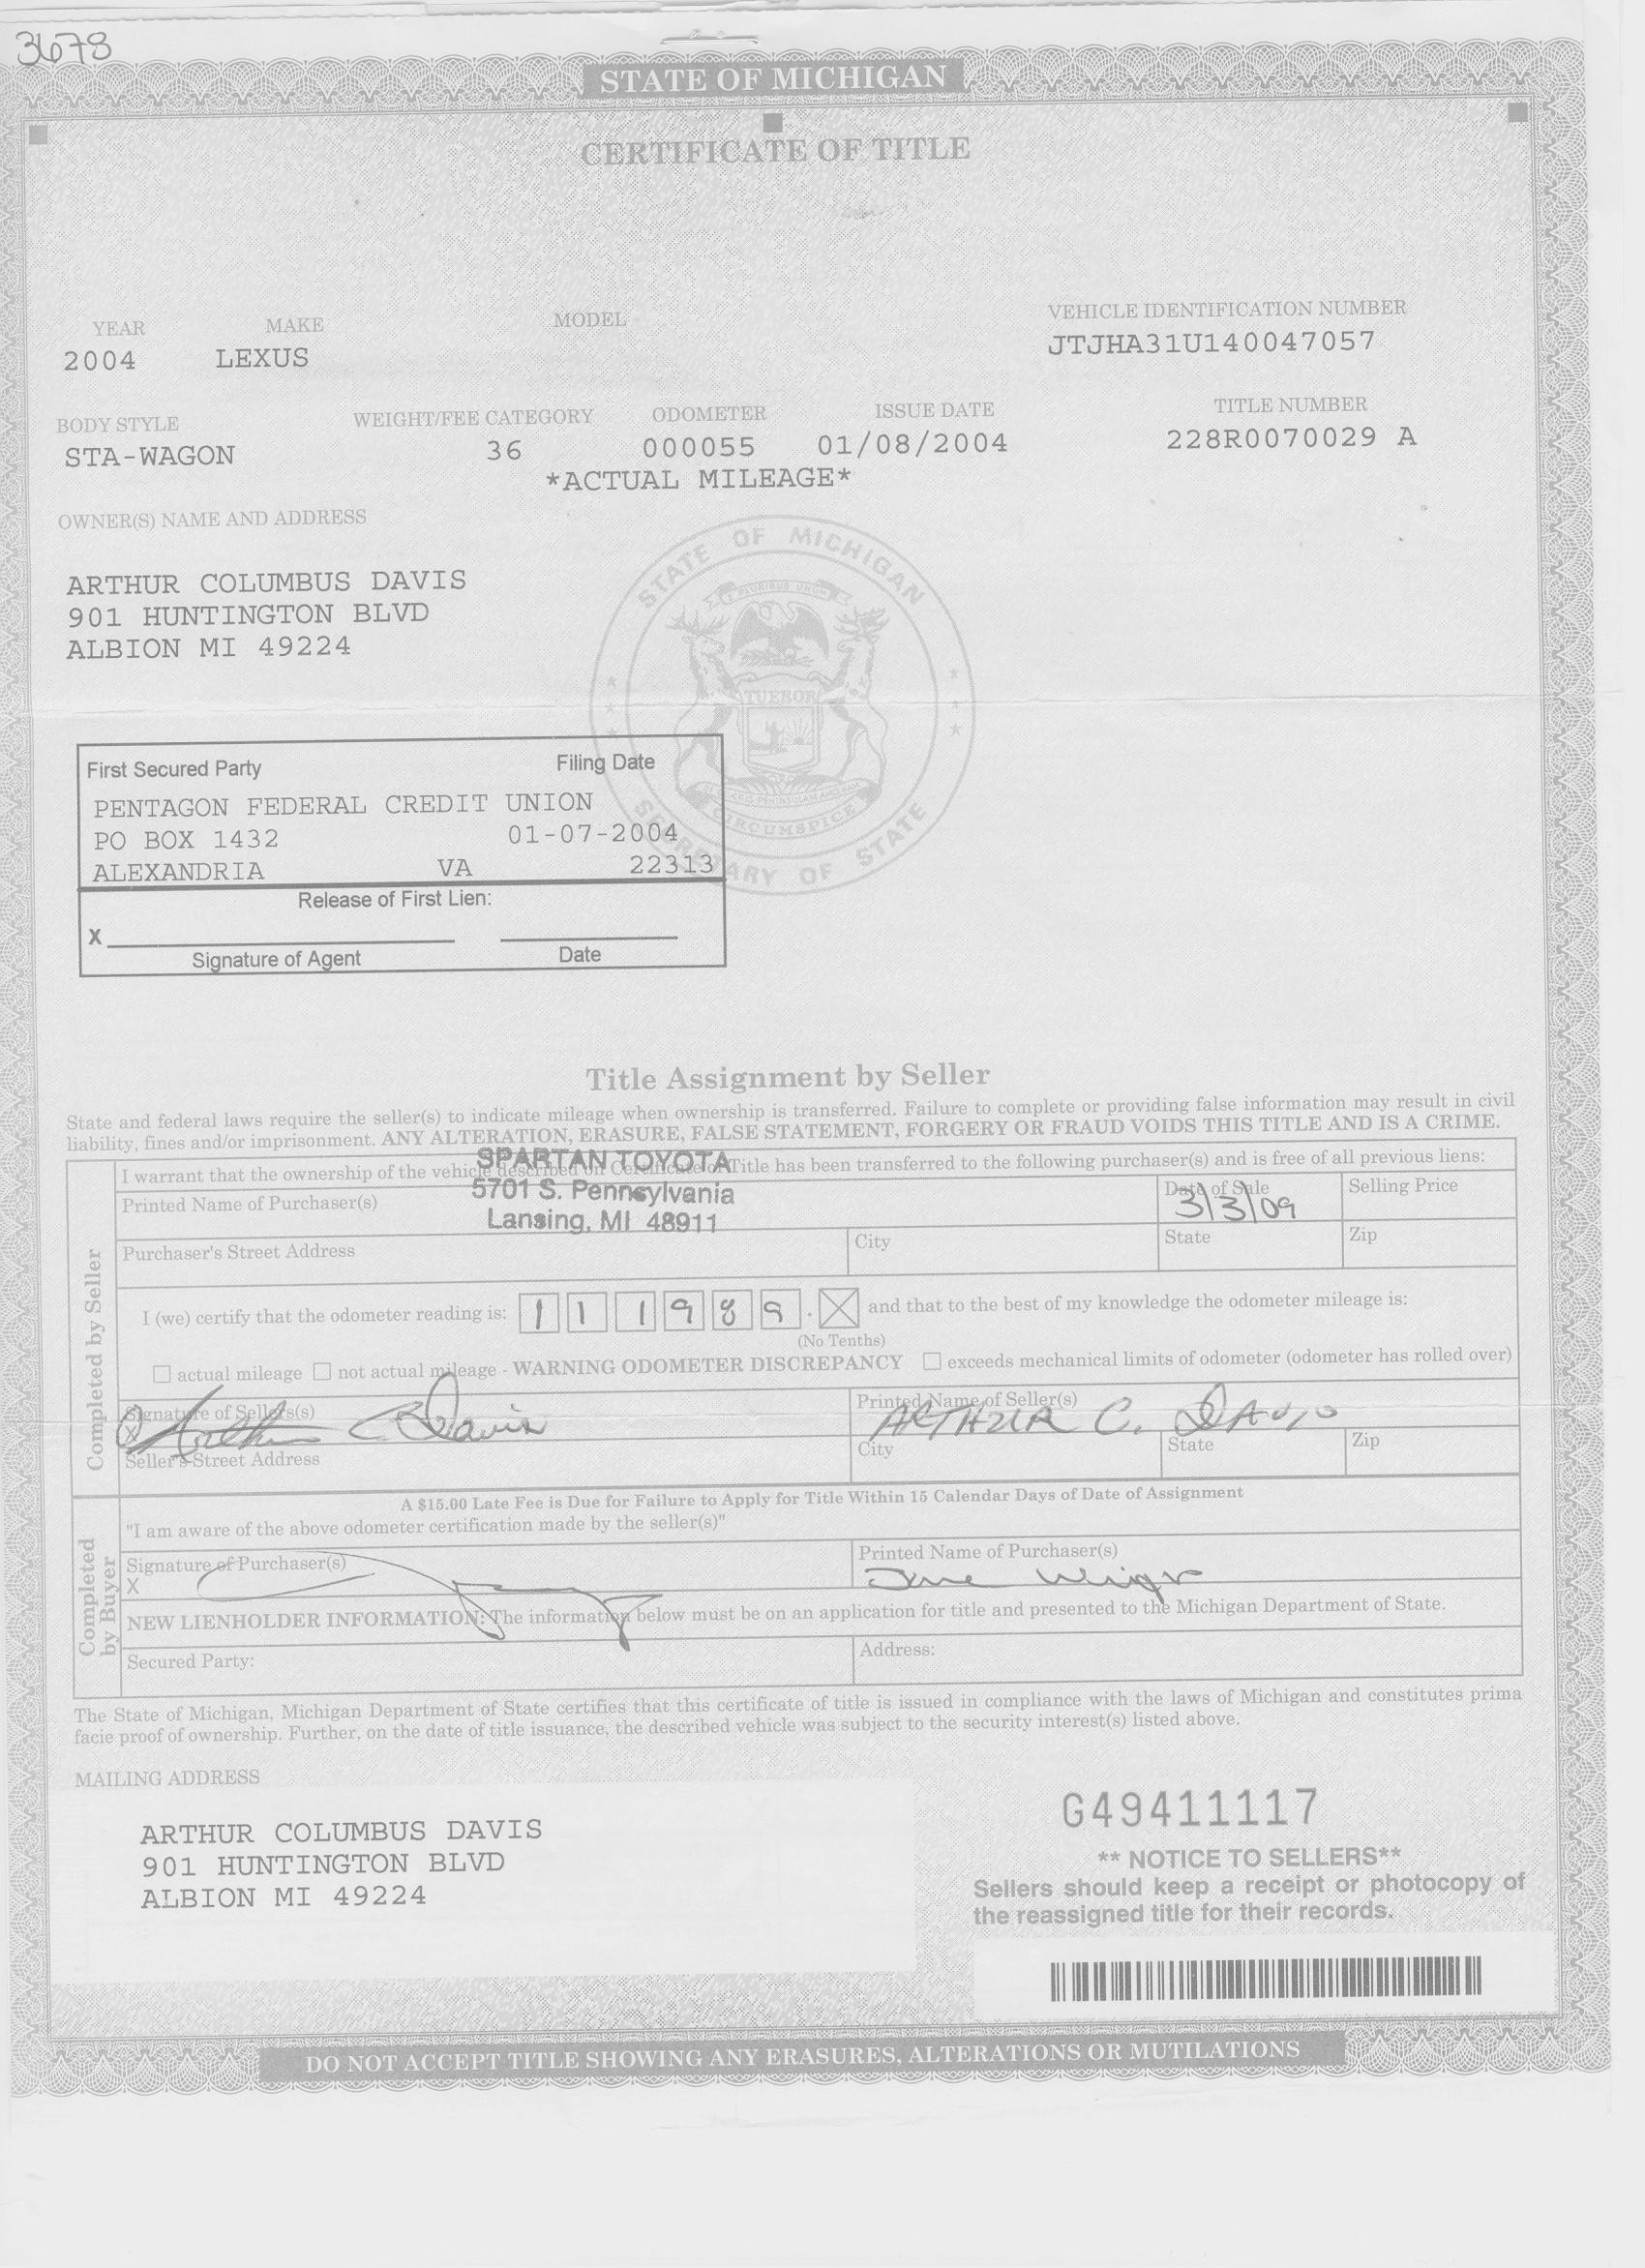 3678
STATE OF MICHIGAN
CERTIFICATE OF TITLE
YEAR MAKE MODEL VEHICLE IDENTIFICATION NUMBER
2004 LEXUS JTJHA31U140047057
BODY STYLE WEIGHT/FEE CATEGORY ODOMETER ISSUE DATE TITLE NUMBER
STA-WAGON 36 000055 01/08/2004 228R0070029 A
*ACTUAL MILEAGE*
OWNER(S) NAME AND ADDRESS
STATE OF MICHIGAN
E PLURIBUS UNUM
TUEBOR
CIRCUMSPICE
SECRETARY OF STATE
ARTHUR COLUMBUS DAVIS
901 HUNTINGTON BLVD
ALBION MI 49224
First Secured Party Filing Date
PENTAGON FEDERAL CREDIT UNION
PO BOX 1432 01-07-2004
ALEXANDRIA VA 22313
Release of First Lien:
X
Signature of Agent Date
Title Assignment by Seller
State and federal laws require the seller(s) to indicate mileage when ownership is transferred. Failure to complete or providing false information may result in civil
liability, fines and/or imprisonment. ANY ALTERATION, ERASURE, FALSE STATEMENT, FORGERY OR FRAUD VOIDS THIS TITLE AND IS A CRIME.
Completed by Seller
I warrant that the ownership of the vehicle described on Certificate of Title has been transferred to the following purchaser(s) and is free of all previous liens:
SPARTAN TOYOTA
5701 S. Pennsylvania
Lansing, MI 48911
Printed Name of Purchaser(s) Date of Sale Selling Price
3/3/09
Purchaser's Street Address City State Zip
I (we) certify that the odometer reading is: 1 1 1 9 8 9 . X and that to the best of my knowledge the odometer mileage is:
(No Tenths)
actual mileage not actual mileage - WARNING ODOMETER DISCREPANCY exceeds mechanical limits of odometer (odometer has rolled over)
Signature of Sellers(s) Printed Name of Seller(s)
X Arthur C Davis ARTHUR C. DAVIS
Seller's Street Address City State Zip
A $15.00 Late Fee is Due for Failure to Apply for Title Within 15 Calendar Days of Date of Assignment
Completed by Buyer
"I am aware of the above odometer certification made by the seller(s)"
Signature of Purchaser(s) Printed Name of Purchaser(s)
X
NEW LIENHOLDER INFORMATION: The information below must be on an application for title and presented to the Michigan Department of State.
Secured Party: Address:
The State of Michigan, Michigan Department of State certifies that this certificate of title is issued in compliance with the laws of Michigan and constitutes prima
facie proof of ownership. Further, on the date of title issuance, the described vehicle was subject to the security interest(s) listed above.
MAILING ADDRESS
ARTHUR COLUMBUS DAVIS
901 HUNTINGTON BLVD
ALBION MI 49224
G49411117
** NOTICE TO SELLERS**
Sellers should keep a receipt or photocopy of
the reassigned title for their records.
DO NOT ACCEPT TITLE SHOWING ANY ERASURES, ALTERATIONS OR MUTILATIONS